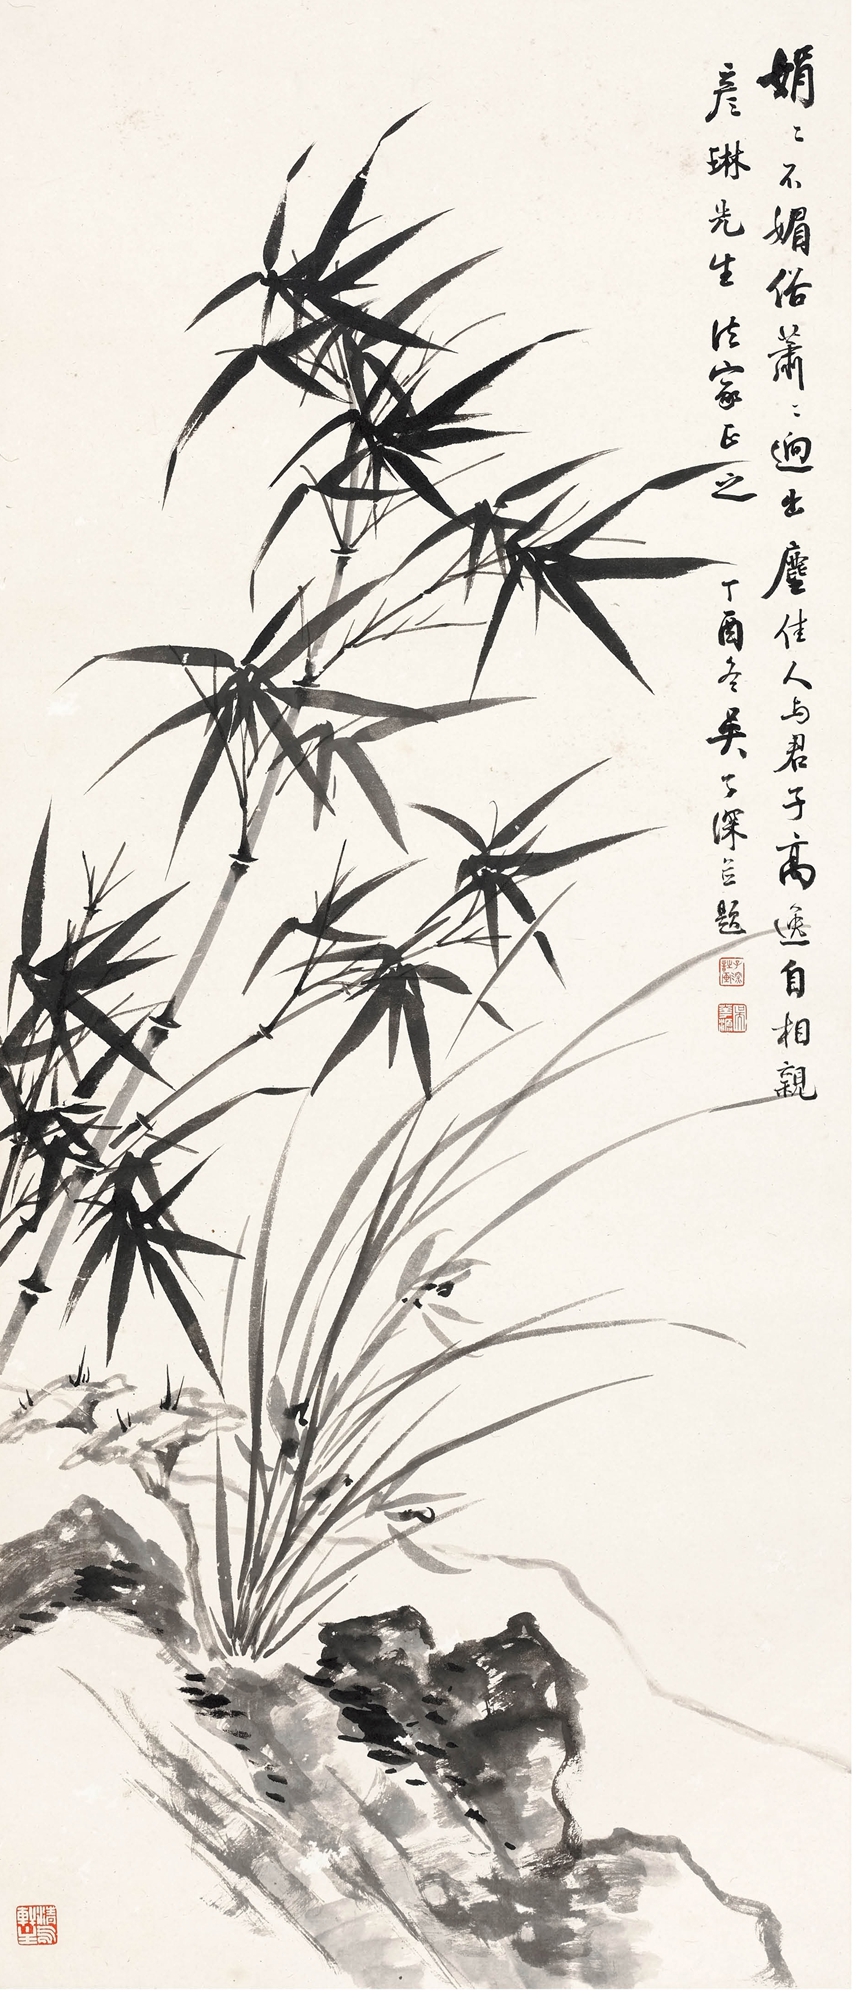 娟〻不媚俗蕭〻迥出塵佳人与君子高逸自相親
彦琳先生法家正之
丁酉冬吳子深并題